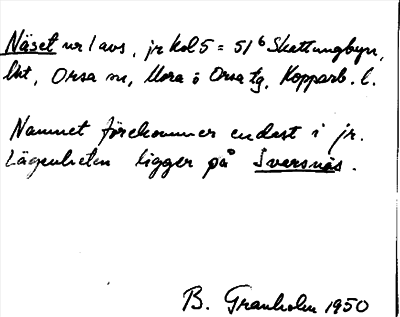 Näset nr 1 avs, jr kol 5 = 51⁶ Skattungbyn,
lht, Orsa sn, Mora o Orsa tg, Kopparb. l.
Namnet förekommer endast i jr.
Lägenheten ligger på Ivarsnäs.
B. Granholm 1950